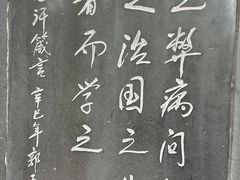 之弊病问
之治国之
者而学之
评箴言 辛巳年郭